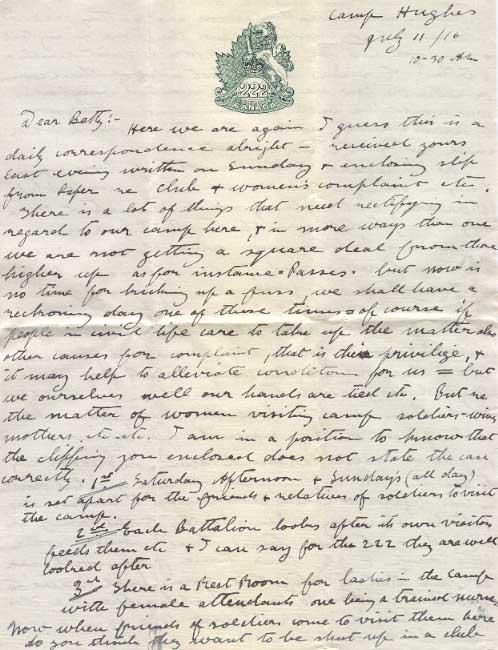 Camp Hughes
July 11/16
10-30 AM
222
CANADA
Dear Betty:-
Here we are again I guess this is a
daily correspondence alright - received yours
last evening written on Sunday & enclosing slip
from paper re Club & women's complaint etc.
There is a lot of things that need rectifying in
regard to our camp here, & in more ways than one
we are not getting a square deal from those
higher up as for instance = Passes. but now is
no time for kicking up a fuss, we shall have a
reckoning day one of these times = of course if
people in civil life care to take up the matter also
other causes for complaint, that is their privilege, &
it may help to alleviate condition for us = but
we ourselves well our hands are tied etc. But re
the matter of women visiting camp soldiers - wives
mothers etc etc. I am in a position to know that
the clipping you enclosed does not state the case
correctly. 1st Saturday Afternoon & Sundays (all day)
is set apart for the friends & relatives of soldiers to visit
the camp.
2nd Each Battalion looks after its own visitors
feeds them etc & I can say for the 222 they are well
looked after
3rd There is a Rest Room for ladies in the Camp
with female attendants one being a trained nurse,
Now when friends of soldiers come to visit them here
do you think they want to be shut up in a club